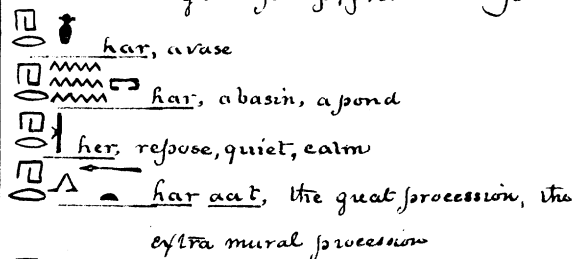 har, a vase
har, a basin, a pond
her, repose, quiet, calm
har aat, the great procession, the
extra mural procession